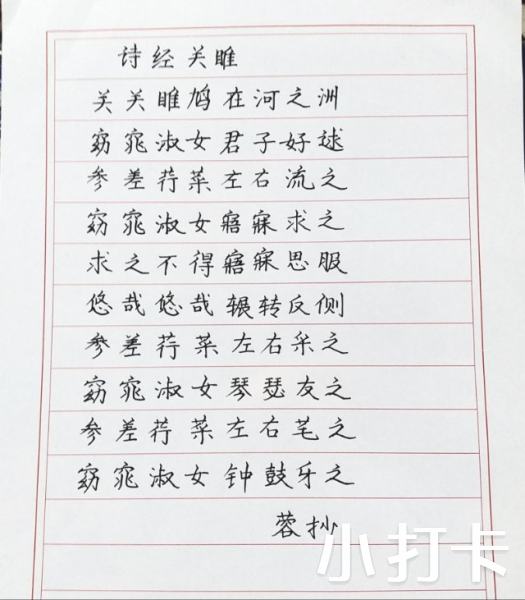 诗经关雎
关关雎鸠在河之洲
窈窕淑女君子好逑
参差荇菜左右流之
窈窕淑女寤寐求之
求之不得寤寐思服
悠哉悠哉辗转反侧
参差荇菜左右采之
窈窕淑女琴瑟友之
参差荇菜左右芼之
窈窕淑女钟鼓牙之
蓉抄
小打卡